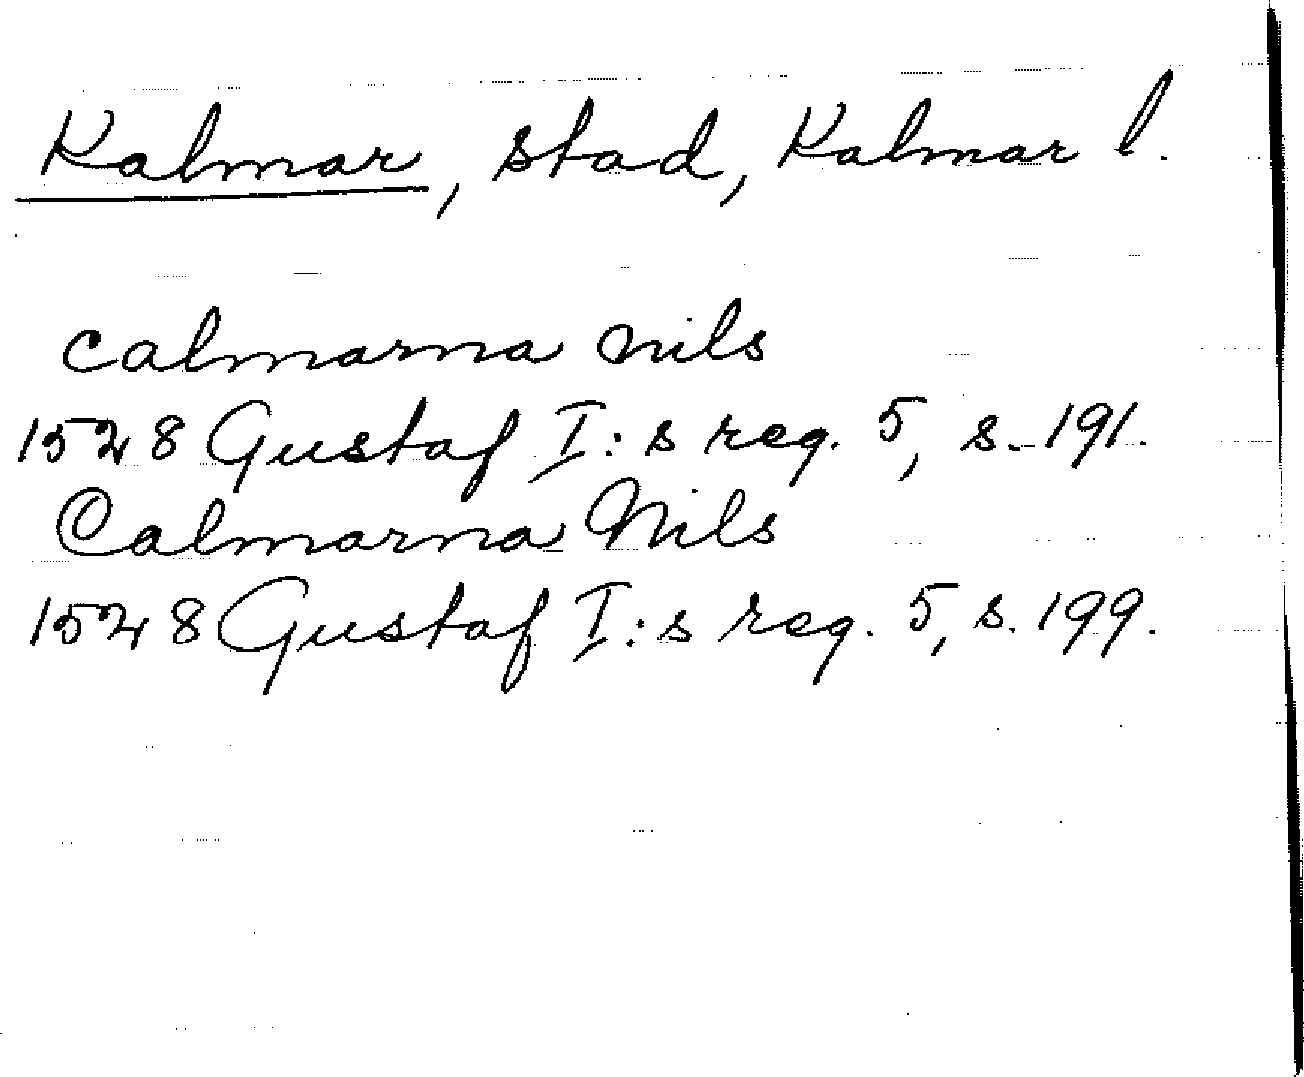 Kalmar, stad, Kalmar l.
calmarna nils
1528 Gustaf I:s reg. 5, s. 191.
Calmarna Nils
1528 Gustaf I:s reg. 5, s. 199.